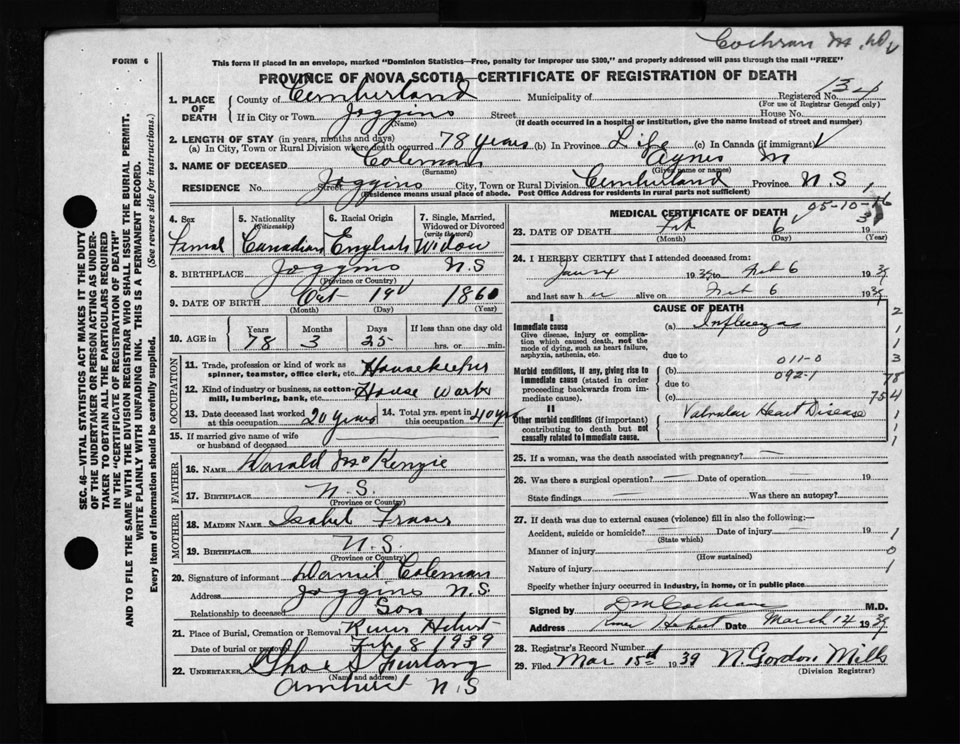 Cochran
FORM 6
This form if placed in an envelope, marked "Dominion Statistics—Free, penalty for improper use $300," and properly addressed will pass through the mail "FREE"
PROVINCE OF NOVA SCOTIA—CERTIFICATE OF REGISTRATION OF DEATH
1. PLACE OF DEATH County of Cumberland Municipality of Registered No. 134
(For use of Registrar General only)
If in City or Town Joggins Street House No.
(Name) (If death occurred in a hospital or institution, give the name instead of street and number)
2. LENGTH OF STAY (in years, months and days)
(a) In City, Town or Rural Division where death occurred 78 years (b) In Province Life (c) In Canada (if immigrant)
3. NAME OF DECEASED Coleman Agnes M
(Surname) (Given name or names)
RESIDENCE No. Street Joggins City, Town or Rural Division Cumberland Province N S
(Residence means usual place of abode. Post Office Address for residents in rural parts not sufficient)
4. Sex 5. Nationality (Citizenship) 6. Racial Origin 7. Single, Married, Widowed or Divorced (write the word)
Femal Canadian English Widow
8. BIRTHPLACE Joggins N S
(Province or Country)
9. DATE OF BIRTH Oct 19 1860
(Month) (Day) (Year)
10. AGE in Years Months Days If less than one day old
78 3 25 hrs. or min.
OCCUPATION
11. Trade, profession or kind of work as spinner, teamster, office clerk, etc. Housekeeper
12. Kind of industry or business, as cotton-mill, lumbering, bank, etc. House Work
13. Date deceased last worked at this occupation 20 years 14. Total yrs. spent in this occupation 40 yrs
15. If married give name of wife or husband of deceased
FATHER
16. NAME Donald McKenzie
17. BIRTHPLACE N. S.
(Province or Country)
MOTHER
18. MAIDEN NAME Isabel Fraser
19. BIRTHPLACE N. S.
(Province or Country)
20. Signature of informant Daniel Coleman
Address Joggins N.S.
Relationship to deceased Son
21. Place of Burial, Cremation or Removal River Hebert
Date of burial or removal Feb 8 1939
22. UNDERTAKER Furlong
(Name and address)
Amherst N.S
MEDICAL CERTIFICATE OF DEATH
05-10-
23. DATE OF DEATH Feb 6 19 3
(Month) (Day) (Year)
24. I HEREBY CERTIFY that I attended deceased from:
19 to Feb 6 1939
and last saw her alive on Feb 6 1939
CAUSE OF DEATH
I
Immediate cause (a) Influenza
Give disease, injury or complication which caused death, not the mode of dying, such as heart failure, asphyxia, asthenia, etc.
due to 011-0
Morbid conditions, if any, giving rise to immediate cause (stated in order proceeding backwards from immediate cause). (b) 092-1
due to
(c)
II
Other morbid conditions (if important) contributing to death but not causally related to immediate cause. Valvular Heart Disease
2
1
1
3
78
754
1
1
1
25. If a woman, was the death associated with pregnancy? —
26. Was there a surgical operation? — Date of operation — 19
State findings — Was there an autopsy?
27. If death was due to external causes (violence) fill in also the following:—
Accident, suicide or homicide? Date of injury 19
(State which)
Manner of injury
(How sustained)
Nature of injury
1
0
1
Specify whether injury occurred in industry, in home, or in public place
Signed by D M Cochrane M.D.
Address River Hebert Date March 14 1939
28. Registrar's Record Number
29. Filed Mar 15th 1939 N. Gordon Mills
(Division Registrar)
SEC. 46—VITAL STATISTICS ACT MAKES IT THE DUTY OF THE UNDERTAKER OR PERSON ACTING AS UNDERTAKER TO OBTAIN ALL THE PARTICULARS REQUIRED IN THE "CERTIFICATE OF REGISTRATION OF DEATH" AND TO FILE THE SAME WITH THE DIVISION REGISTRAR WHO SHALL ISSUE THE BURIAL PERMIT.
WRITE PLAINLY WITH UNFADING INK. THIS IS A PERMANENT RECORD.
Every item of Information should be carefully supplied. (See reverse side for instructions.)